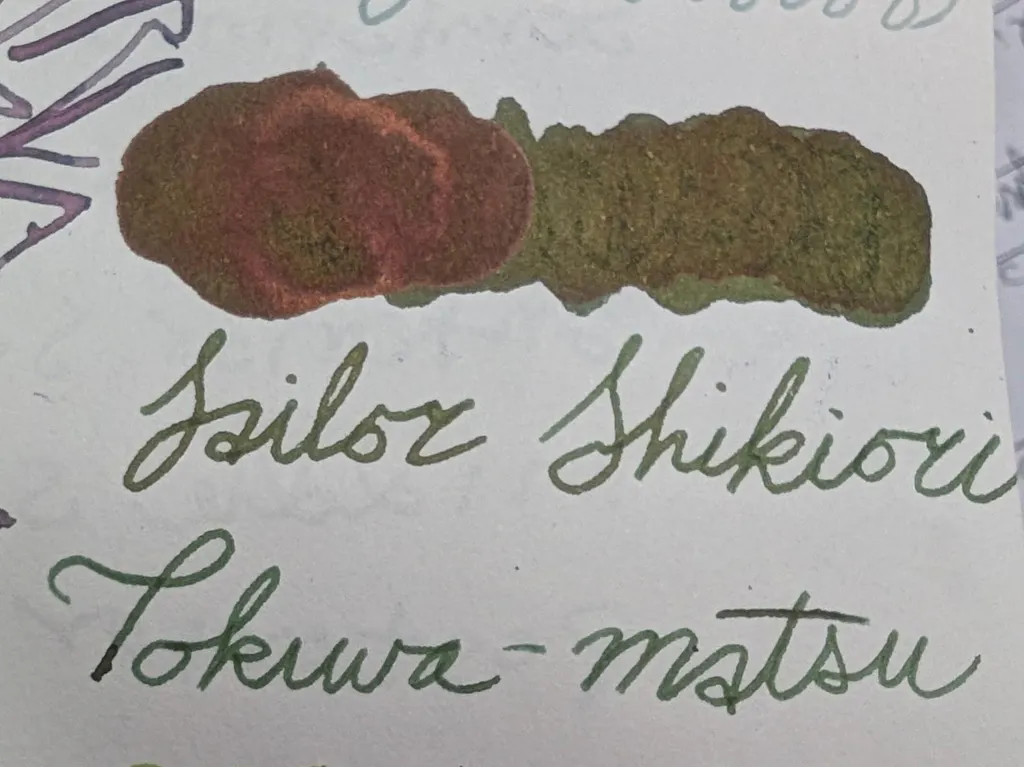 Sailor Shikiori
Tokiwa-matsu